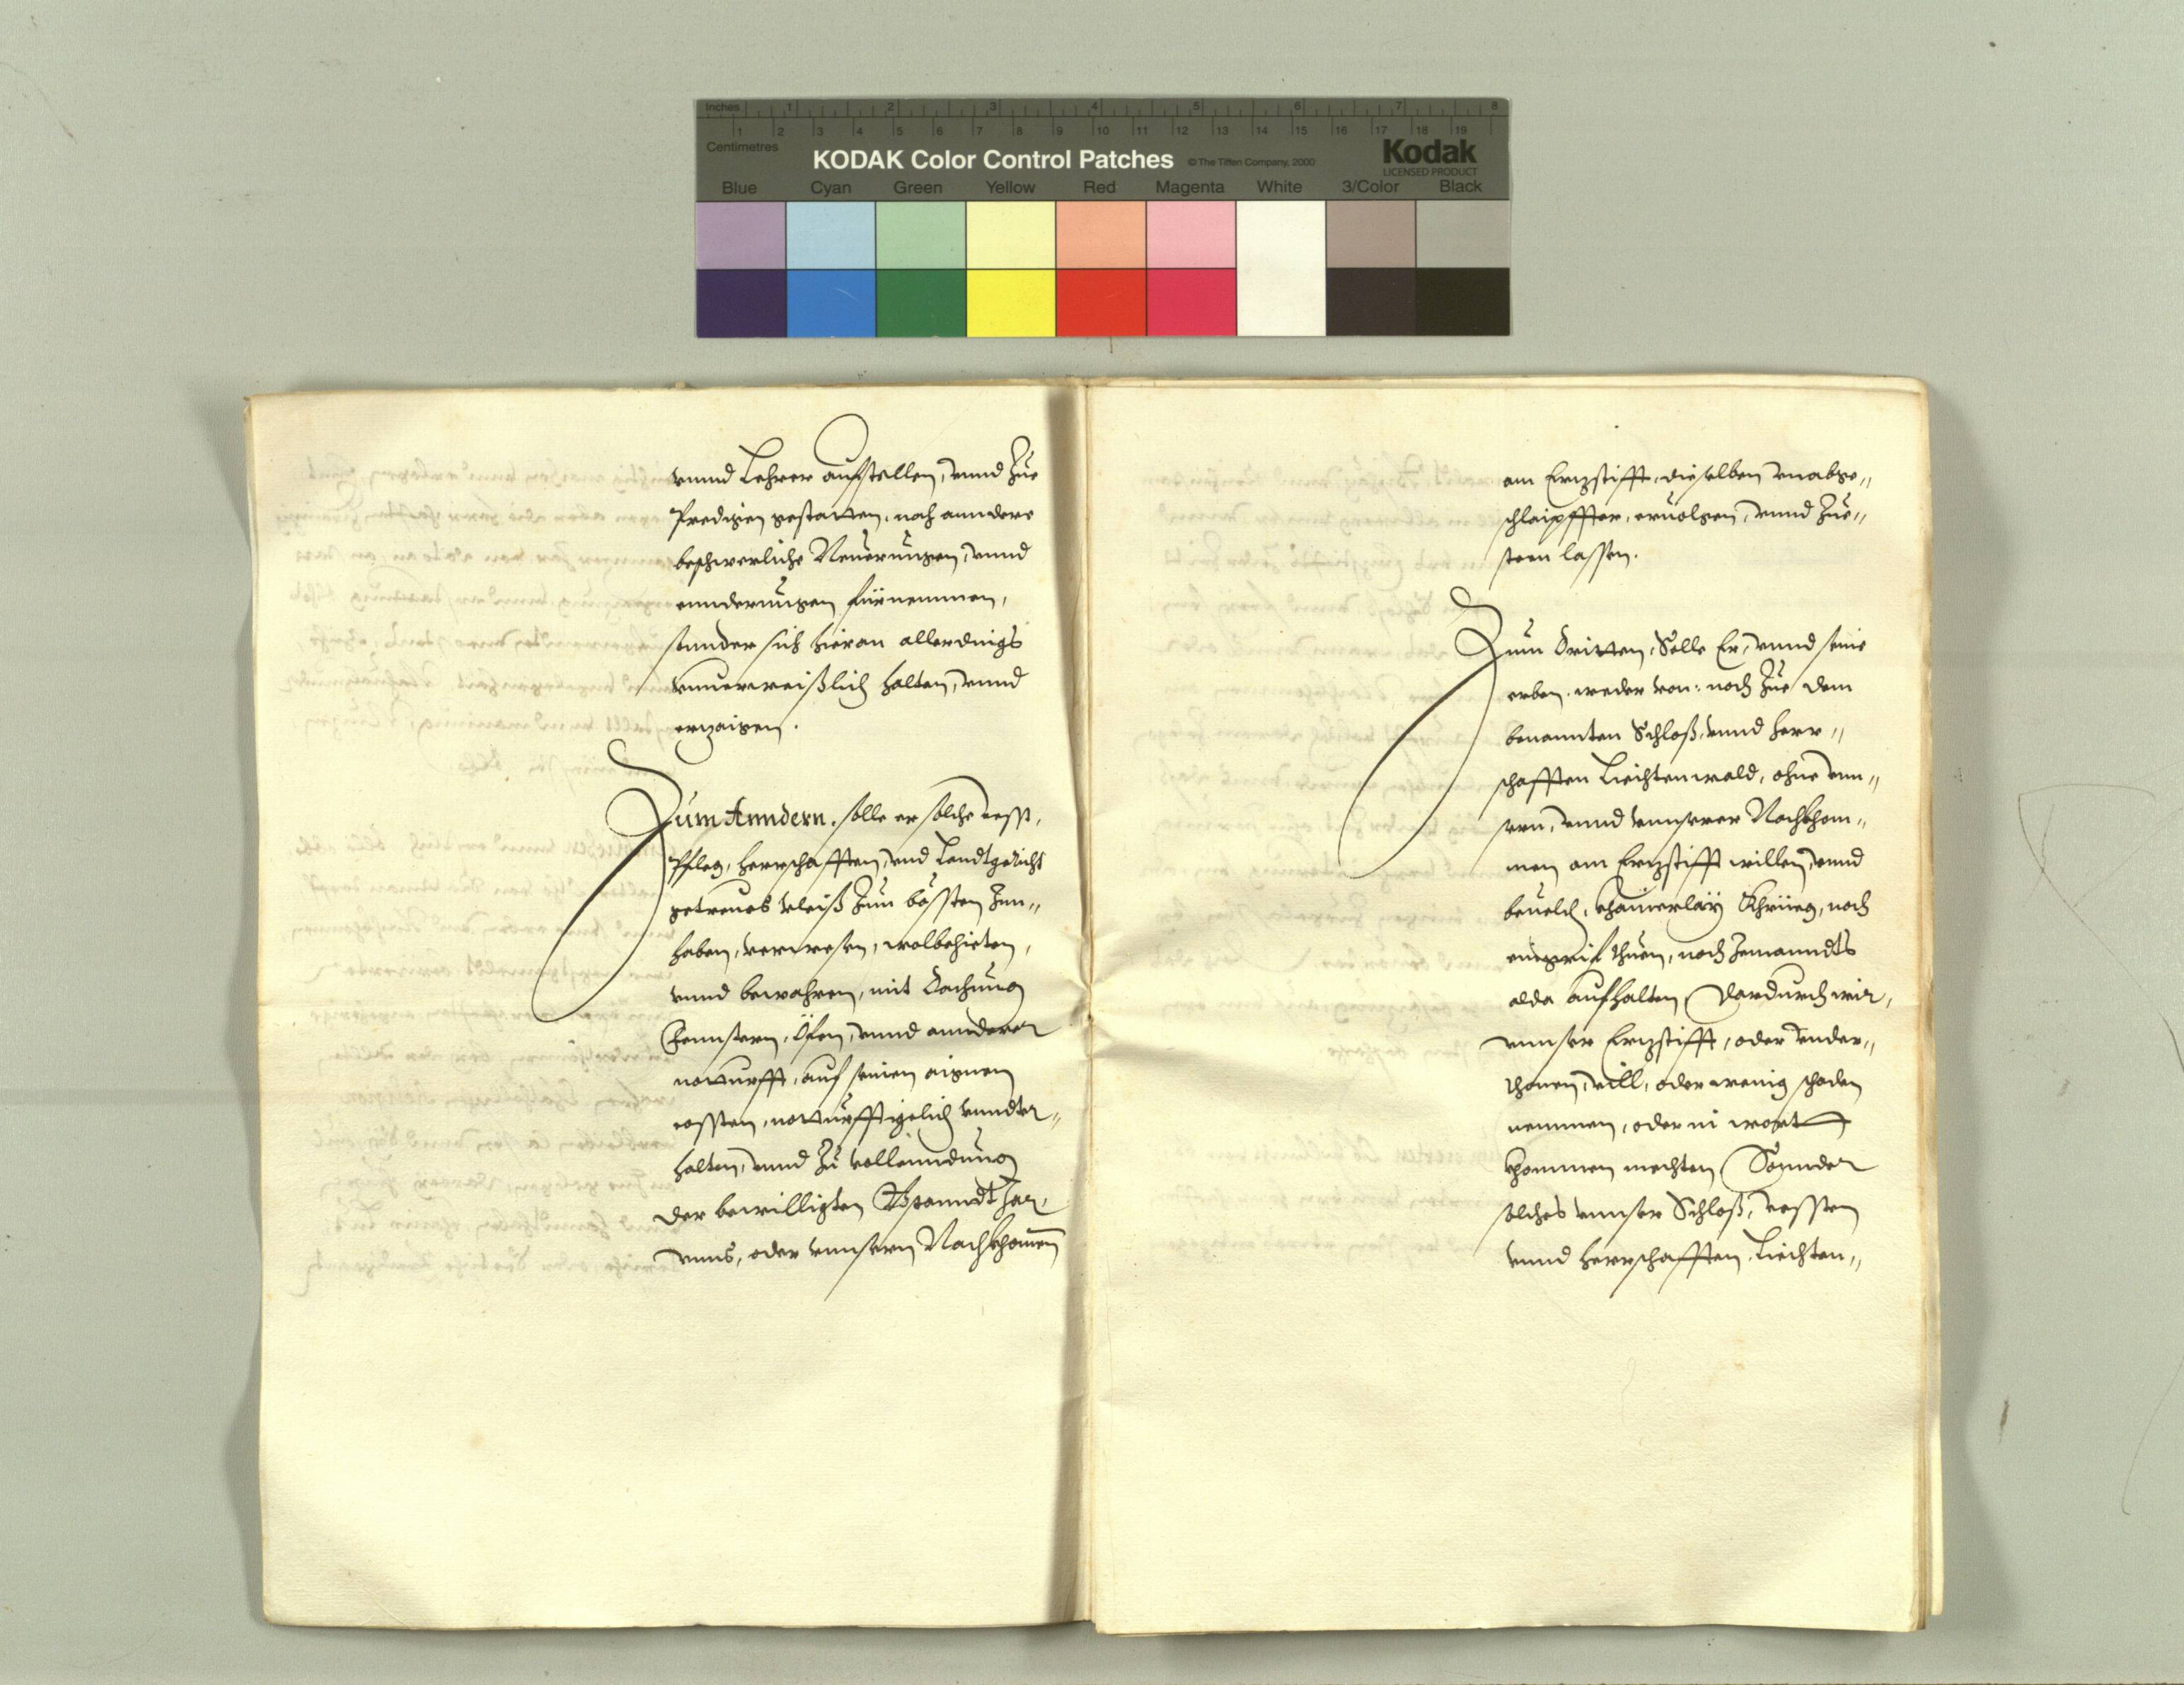 Inches 1 2 3 4 5 6 7 8
1 2 3 4 5 6 7 8 9 10 11 12 13 14 15 16 17 18 19
Centimetres
KODAK Color Control Patches © The Tiffen Company, 2000 Kodak
LICENSED PRODUCT
Blue Cyan Green Yellow Red Magenta White 3/Color Black
vnnd Lehrer aufstellen, vnnd Zue
Predigen gestatten, noch anndere
beschwerliche Neuerungen, vnnd
ennderungen fürnemmen,
sonnder sich hieran allerdings
vnuerweißlich halten, vnnd
erzaigen.
Zum Anndern. solle er solche vesst,
Pfleg, Herrschafften, vnd Landtgericht
getreues vleiß Zum bössten Inn¬
haben, verwesen, wolbehieten,
vnnd bewahren, mit Dachung
Fennstern, Öfen, vnnd annderer
notturfft, auf seinen aignen
cossten, notturfftigelich vnndter¬
halten, vnnd Zu vollenndung
der bewilligten Bstanndt Jar,
vnns, oder vnnsern Nachkhomen
am Erzstifft, dieselben vnabge¬
schlaipffter, eruolgen, vnnd Zue¬
steen lassen.
Zum Dritten, Solle Er, vnnd seine
erben, weder von: noch Zue dem
benannten Schloß, vnnd Herr¬
schafften Liechtenwald, ohne vnn¬
sern, vnnd vnnserer Nachkhom¬
men am Erzstifft willen, vnnd
beuelch, khainerlay Khrieg, noch
angrif thuen, noch Jemanndts
alda aufhalten, Dardurch wir,
vnnser Erzstifft, oder vnder¬
thonen, vill, oder wenig schaden
nemmen, oder in wort
khommen mechten, Sonnder
solches vnnser Schloß, vessten
vnnd Herrschafften, Liechten¬